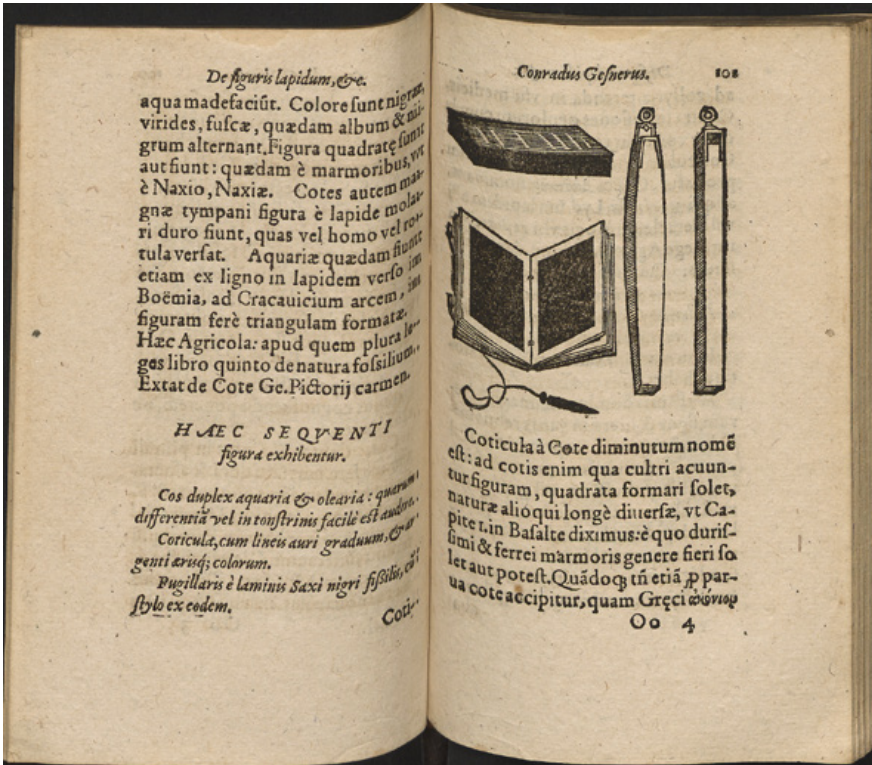 De figuris lapidum, &c.
aqua madefaciũt. Colore sunt nigræ,
virides, fuscæ, quædam album & ni-
grum alternant. Figura quadratę sunt
aut fiunt: quædam è marmoribus, vt
è Naxio, Naxiæ. Cotes autem ma-
gnæ tympani figura è lapide mola-
ri duro fiunt, quas vel homo vel ro-
tula versat. Aquariæ quædam fiunt
etiam ex ligno in lapidem verso in
Boëmia, ad Cracauicium arcem, in
figuram ferè triangulam formatæ.
Hæc Agricola: apud quem plura le-
ges libro quinto de natura fossilium.
Extat de Cote Ge. Pictorij carmen.
HAEC SEQVENTI
figura exhibentur.
Cos duplex aquaria & olearia: quarum
differentiã vel in tonstrinis facilè est
Coticulæ, cum lineis auri graduum, & ar
genti ærisq; colorum.
Pugillaris è laminis Saxi nigri fissilis, cũ
stylo ex eodem.
Coti-
Conradus Gesnerus. 102
Coticula à Cote diminutum nomẽ
est: ad cotis enim qua cultri acuun-
tur figuram, quadrata formari solet,
naturæ alioqui longè diuersæ, vt Ca-
pite 1. in Basalte diximus: è quo duris-
simi & ferrei marmoris genere fieri so
let aut potest. Quãdoq; tñ etiã ꝓ par-
ua cote accipitur, quam Gręci
Oo 4